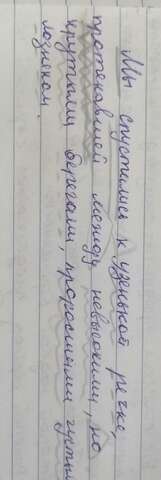 Мы спустились к узенькой речке,
протекавшей между невысокими, но
крутыми берегами, поросшими густым
лозняком.